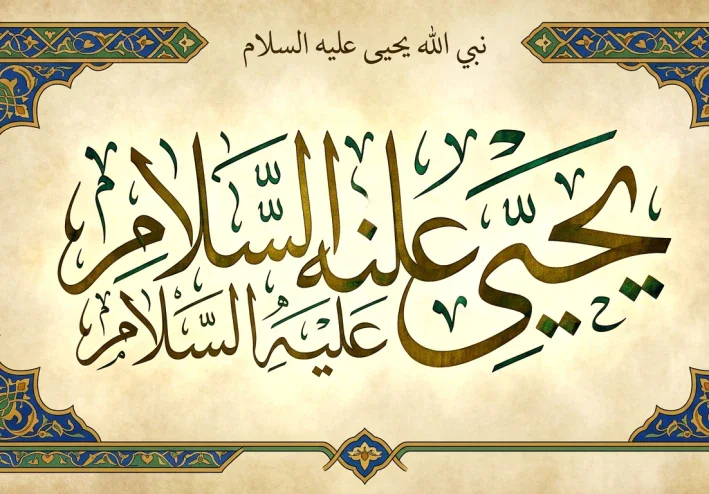 نبي الله يحيى عليه السلام
يحيى علنه السلام
عليه السلام